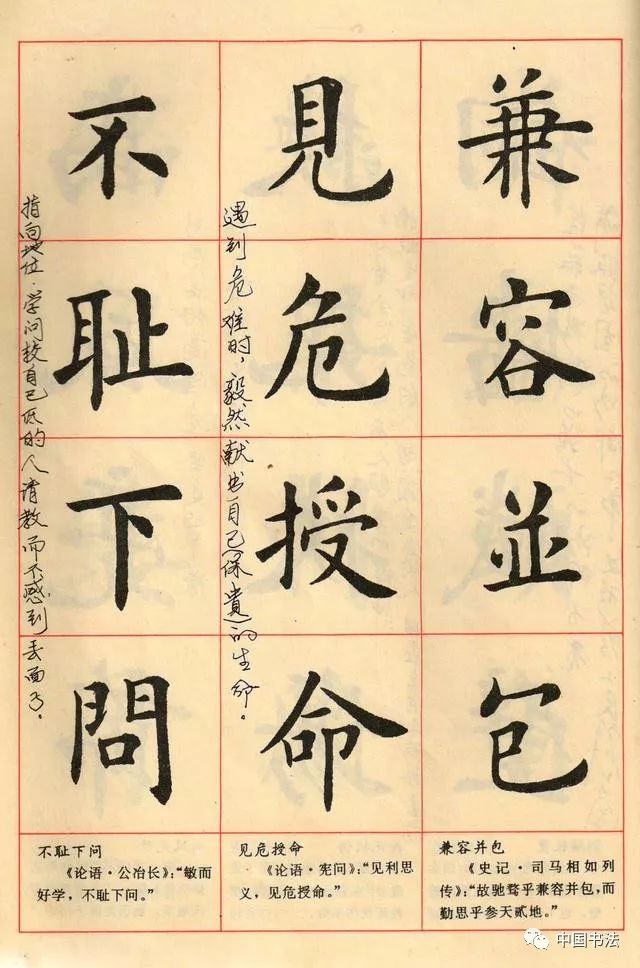 兼容並包
見危授命
遇到危难时，毅然献出自己保遗的生命。
不耻下問
指向地位·学问较自己低的人请教而不感到丢面子。
兼容并包
《史记·司马相如列
传》：“故驰骛乎兼容并包，而
勤思乎参天贰地。”
见危授命
《论语·宪问》：“见利思
义，见危授命。”
不耻下问
《论语·公冶长》：“敏而
好学，不耻下问。”
中国书法